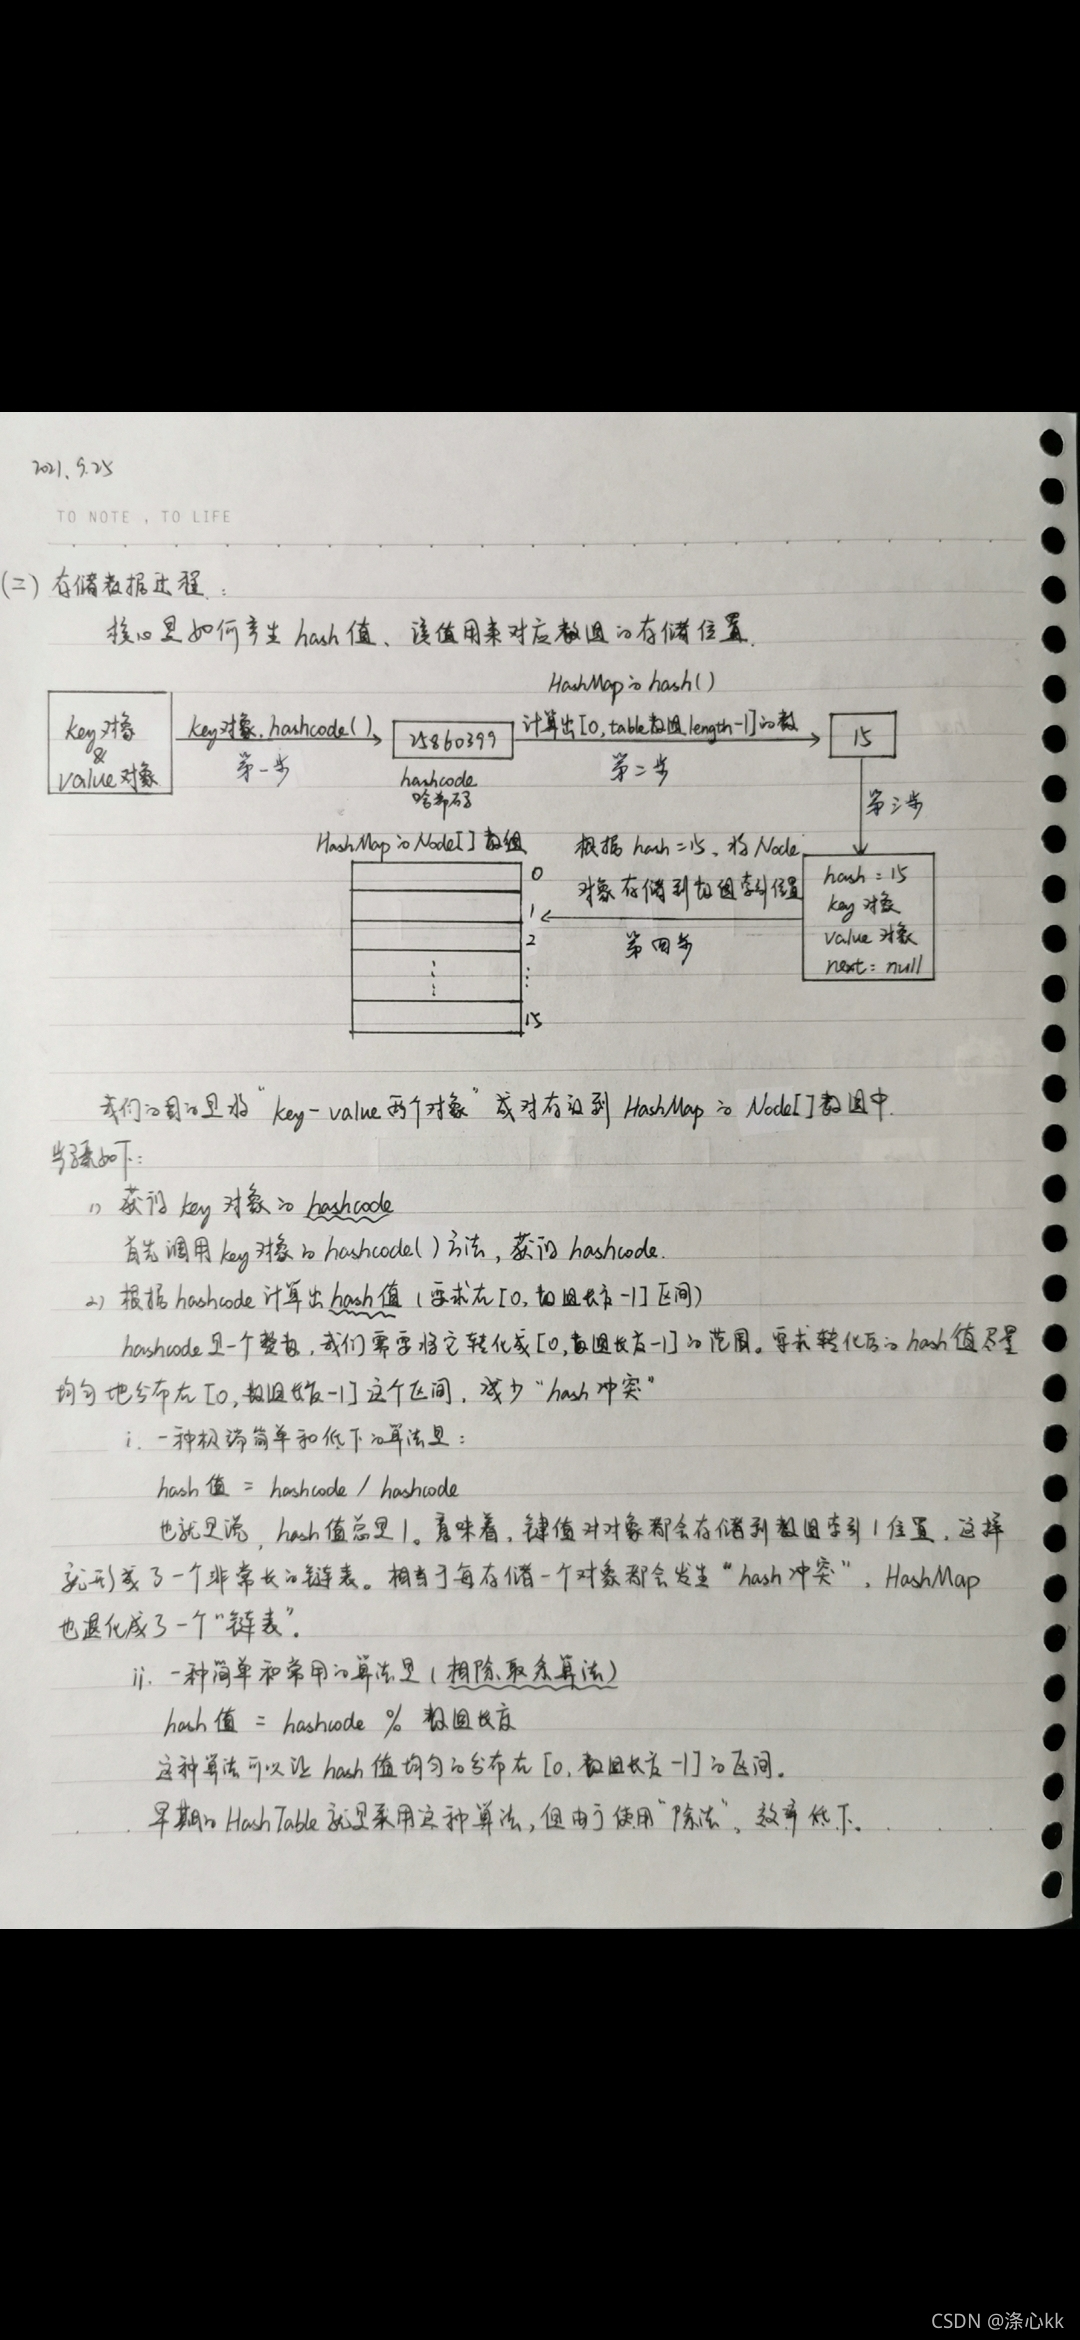 2021.9.25
TO NOTE , TO LIFE
(二) 存储数据过程:
核心是如何产生 hash 值、该值用来对应数组的存储位置.
HashMap的hash()
key对象
&
value对象
key对象.hashcode()
第一步
25860399
hashcode
哈希码
计算出[0, table数组length-1]的数
第二步
15
第三步
HashMap的Node[]数组
0
1
2
15
根据hash=15、将Node
对象存储到数组索引位置
第四步
hash = 15
key 对象
value 对象
next: null
我们的目的是将“key-value两个对象”成对存放到HashMap的Node[]数组中.
步骤如下:
1) 获得key对象的hashcode
首先调用key对象的hashcode()方法, 获得hashcode.
2) 根据hashcode计算出hash值 (要求在[0, 数组长度-1]区间)
hashcode是一个整数, 我们需要将它转化成[0, 数组长度-1]的范围。要求转化后的hash值尽量
均匀地分布在[0, 数组长度-1]这个区间, 减少“hash冲突”
i. 一种极端简单和低下的算法是:
hash值 = hashcode / hashcode
也就是说, hash值总是1。意味着, 键值对对象都会存储到数组索引1位置, 这样
就形成了一个非常长的链表。相当于每存储一个对象都会发生“hash冲突”, HashMap
也退化成了一个“链表”.
ii. 一种简单和常用的算法是 (相除取余算法)
hash值 = hashcode % 数组长度
这种算法可以让hash值均匀的分布在[0, 数组长度-1]的区间。
早期的HashTable就是采用这种算法, 但由于使用“除法”, 效率低下。
CSDN @涤心kk